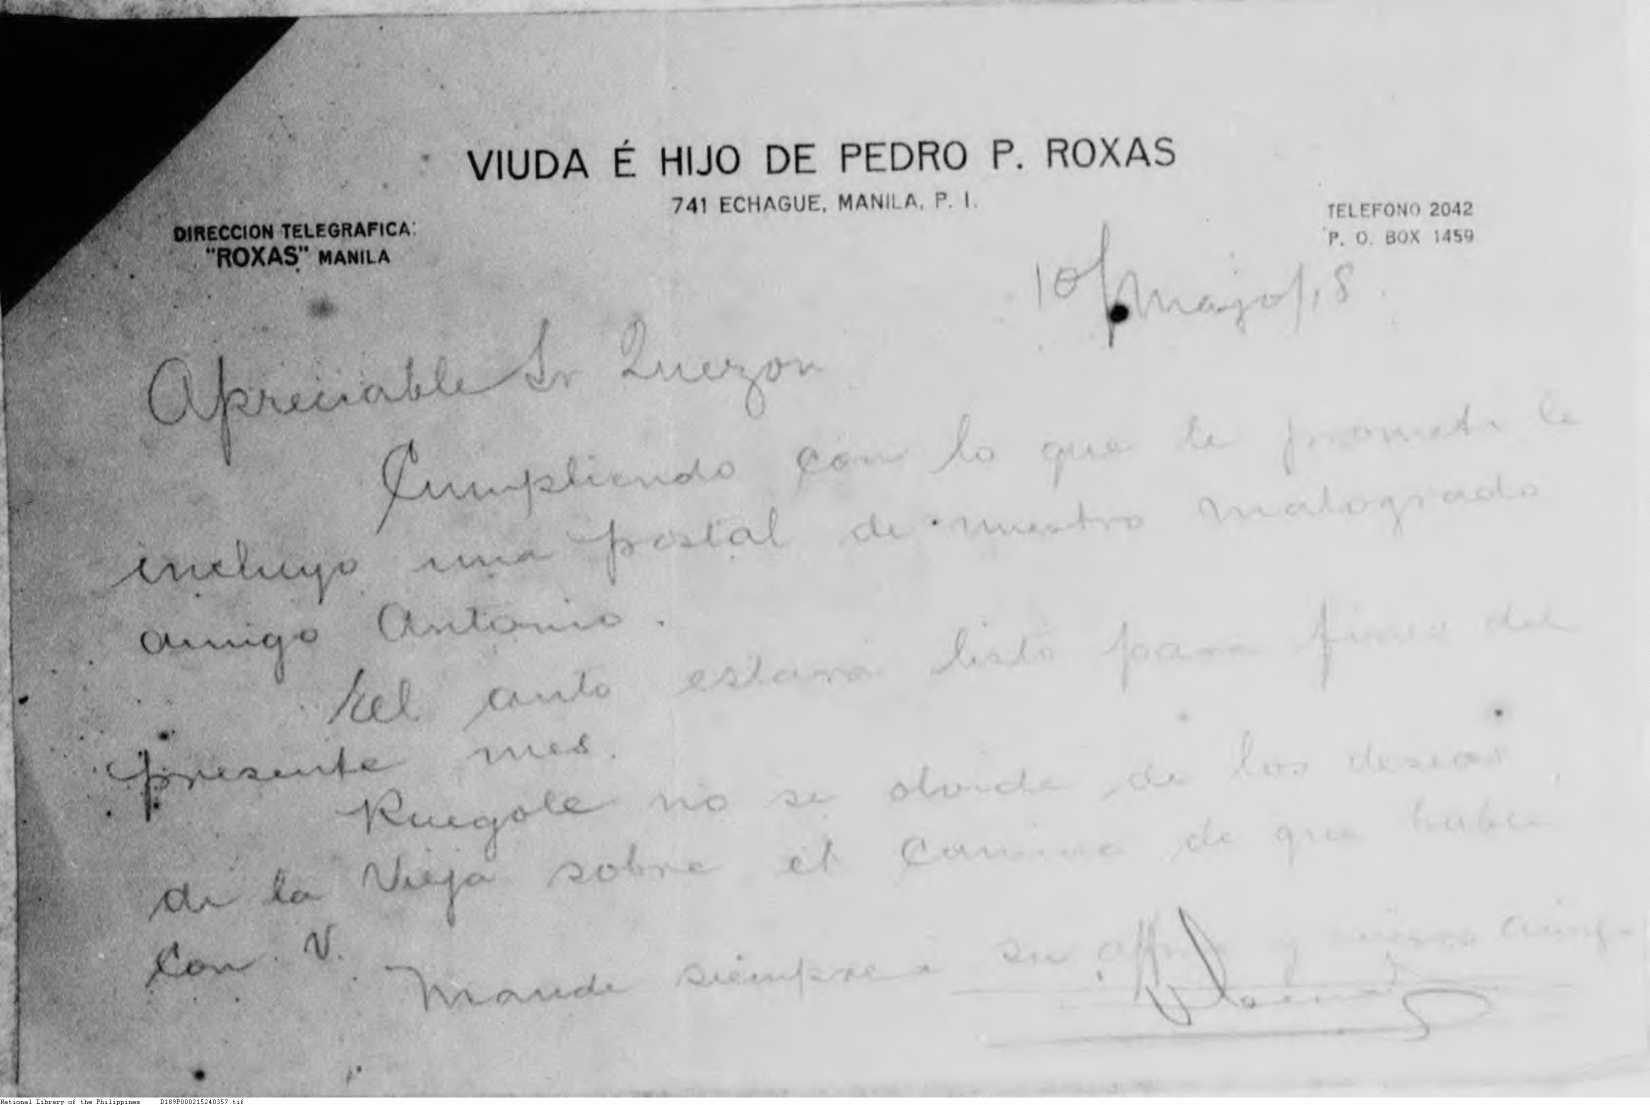 VIUDA É HIJO DE PEDRO P. ROXAS
741 ECHAGUE, MANILA, P. I.
DIRECCION TELEGRAFICA:
"ROXAS" MANILA
TELEFONO 2042
P. O. BOX 1459
10/mayo/18
Apreciable Sr Quezon
Cumpliendo con lo que le prometi le
incluyo una postal de nuestro malogrado
amigo Antonio.
El auto estara listo para fines del
presente mes.
Ruegole no se olvide de los deseos
de la Vieja sobre el Camino de que hable
con V.
Mande siempre a su affmo y amigo
National Library of the Philippines D189P000215240357.tif